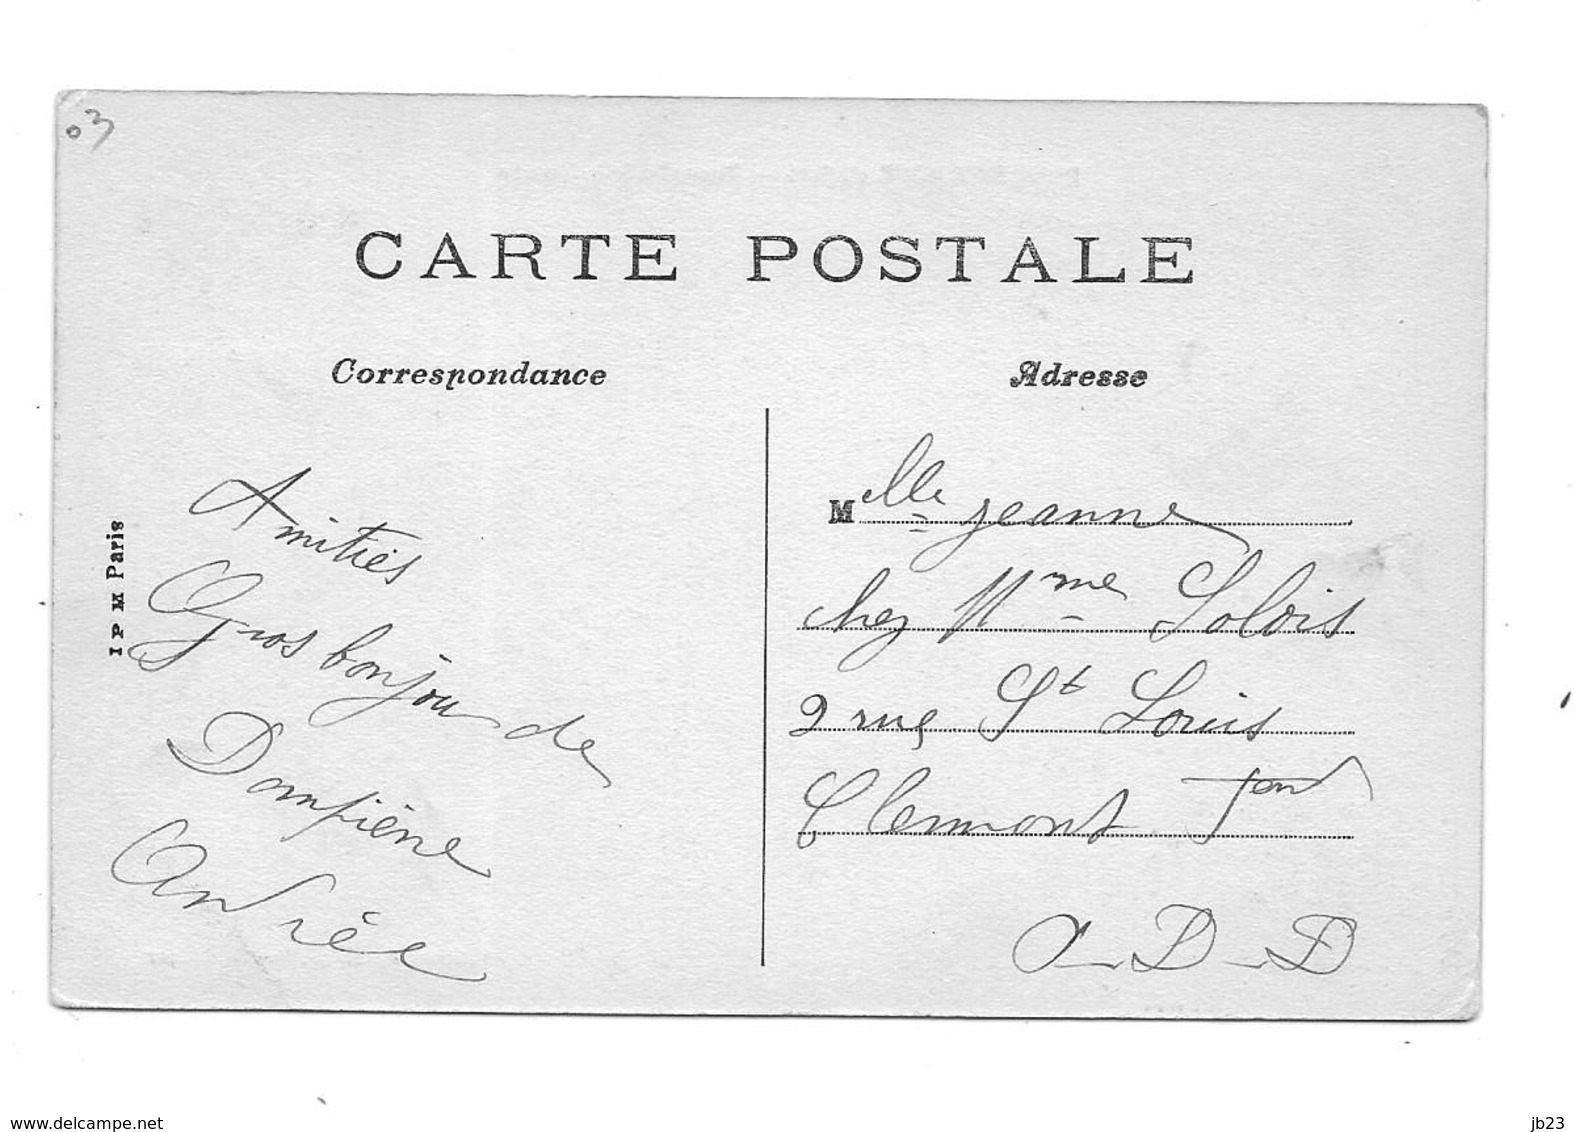 03
CARTE POSTALE
Correspondance
Adresse
I P M Paris
Amitiés
Gros bonjou de
Dompière
Andrée
Melle jeanne
chez Mme Solois
2 rue St Louis
Clermont Ferd
P-D-D
www.delcampe.net
jb23